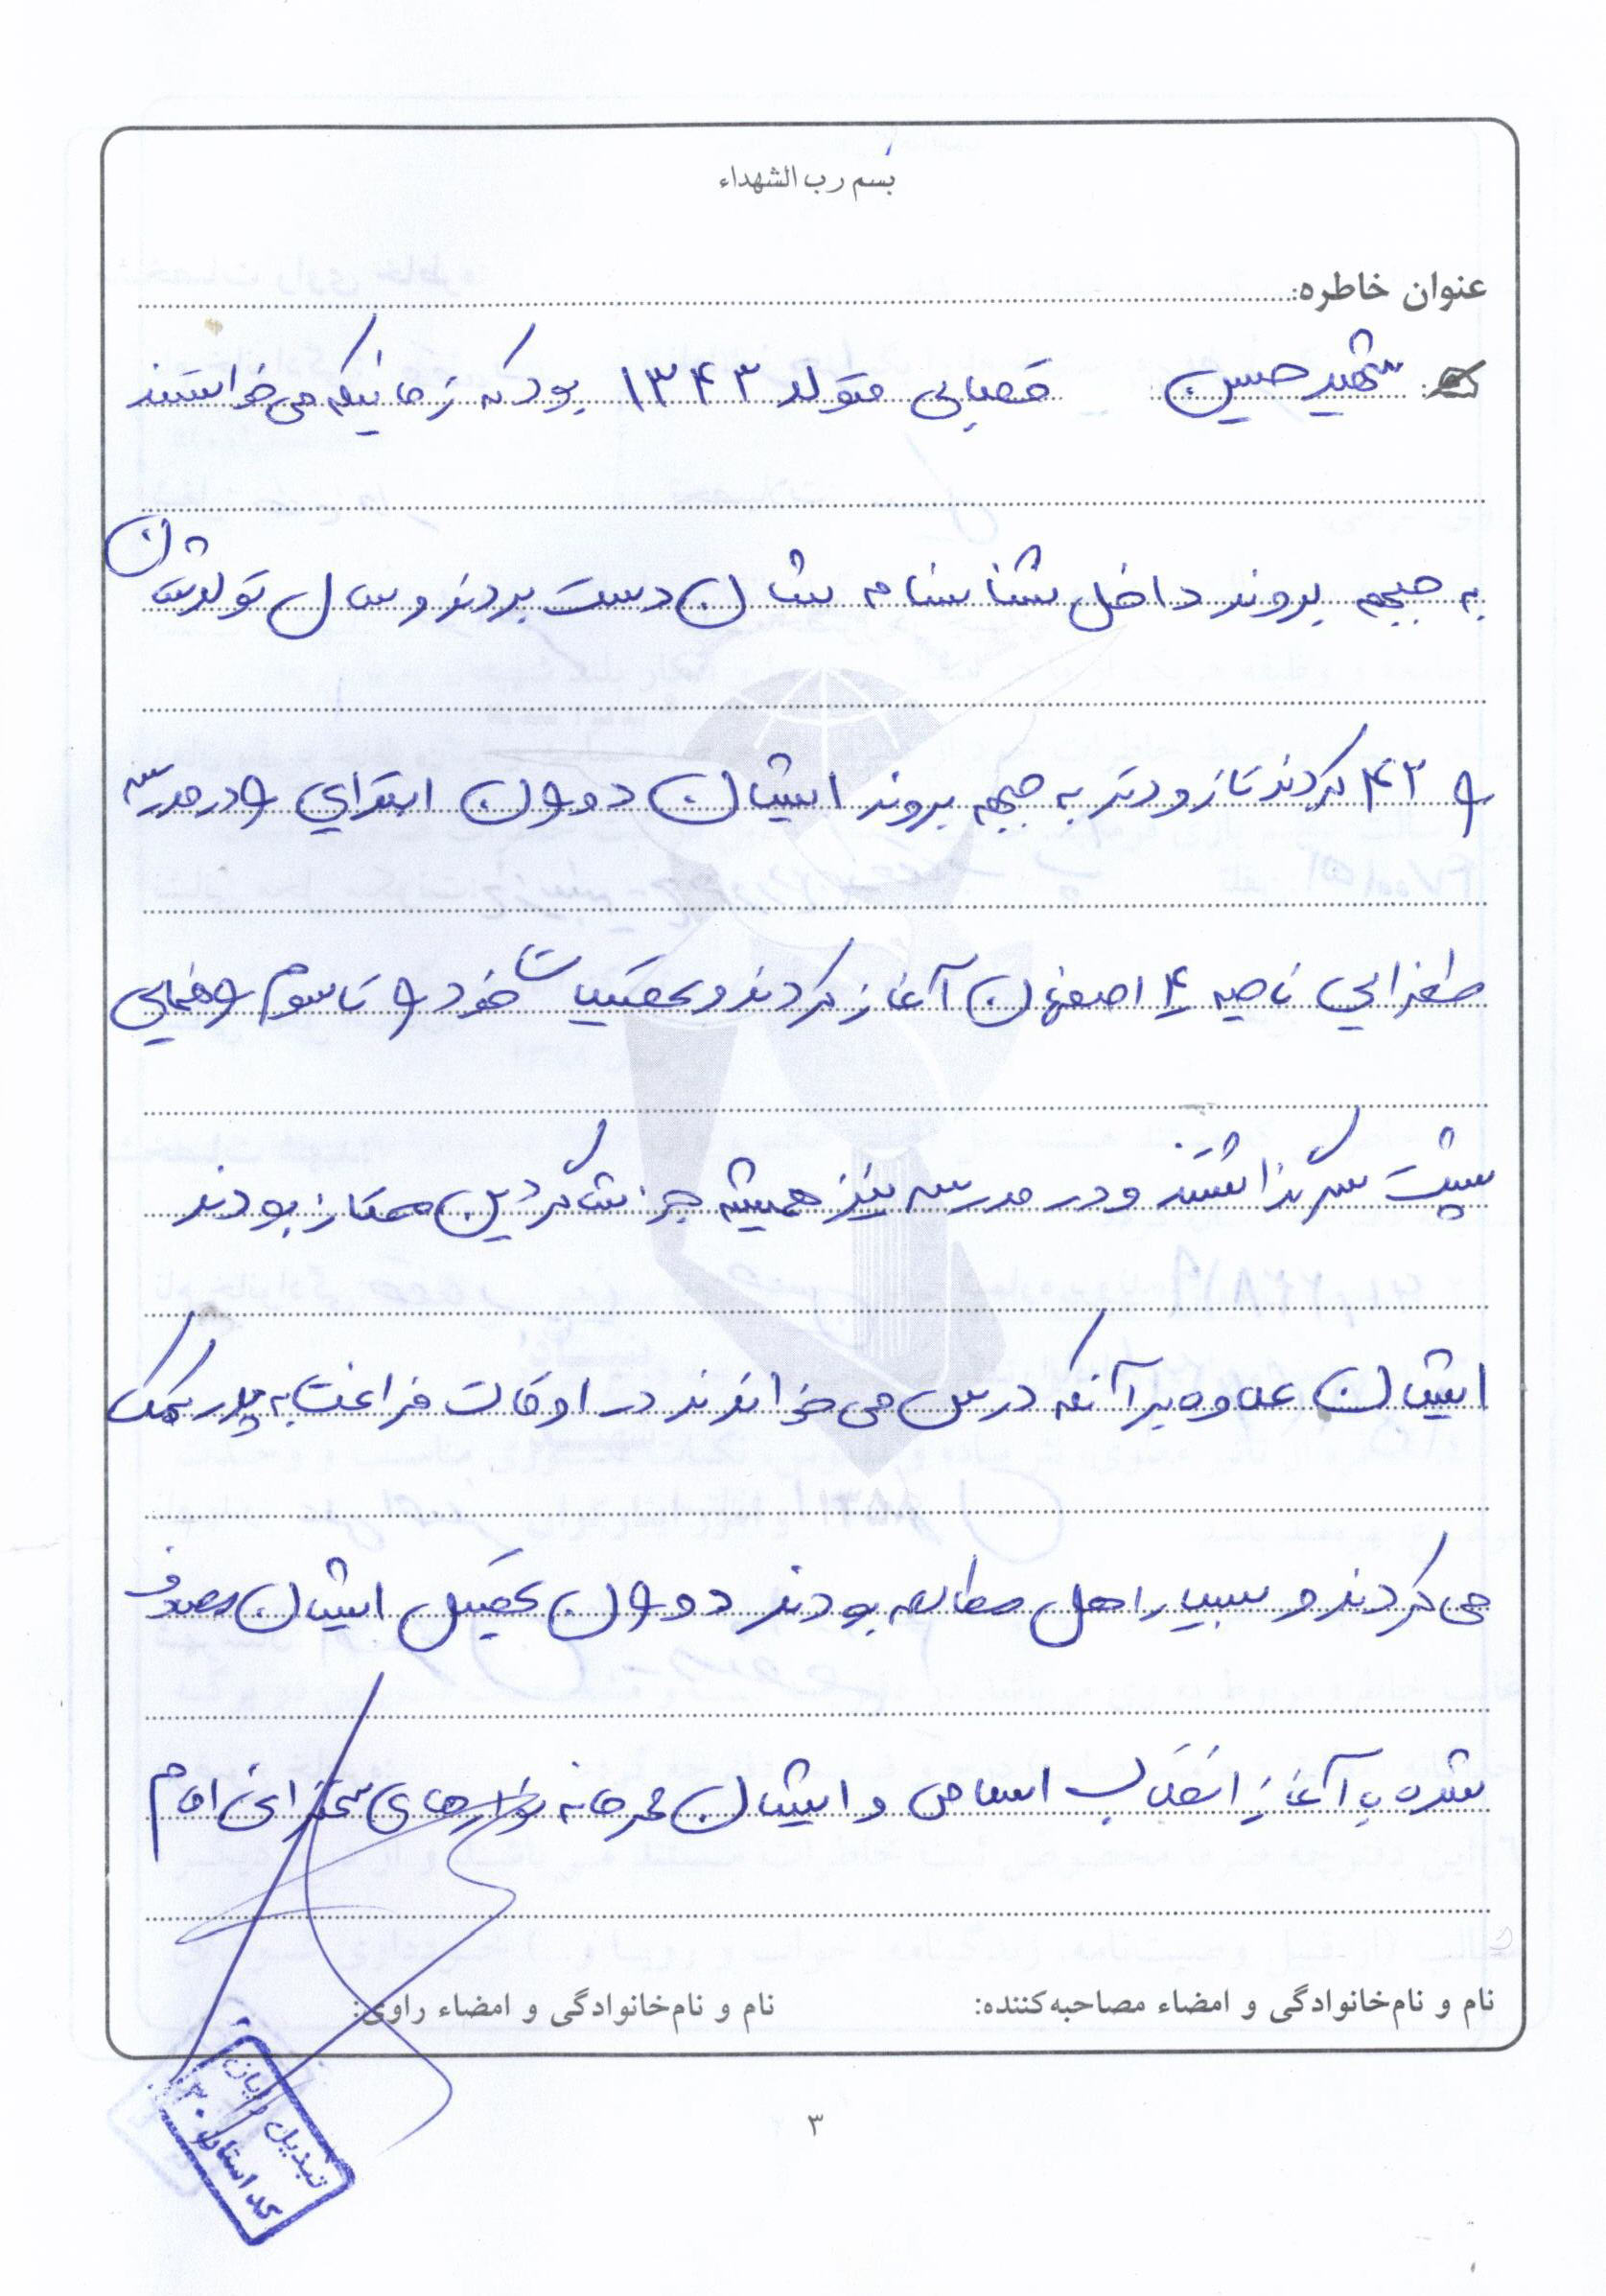 بسم رب الشهداء
عنوان خاطره:
شهید حسین قصابی متولد ۱۳۴۳ بود که زمانیکه می‌خواستند
به جبهه بروند داخل شناسنامه شان دست بردند و سال تولدشان
را ۴۲ کردند تا زودتر به جبهه بروند ایشان دوران ابتدایی را در مدرسه
طغرایی ناحیه ۴ اصفهان آغاز کردند و تحصیلات خود را تا سوم راهنمایی
پشت سر گذاشتند و در مدرسه نیز همیشه جز شاگردین ممتاز بودند
ایشان علاوه بر آنکه درس می خواندند در اوقات فراغت به پدر کمک
می کردند و بسیار اهل مطالعه بودند دوران تحصیل ایشان مصدوف
شده با آغاز انقلاب اسلامی و ایشان محرمانه نوارهای سخنرانی امام
نام و نام‌خانوادگی و امضاء مصاحبه‌کننده:
نام و نام‌خانوادگی و امضاء راوی:
تبدیل
کد استان ۳۰
۳